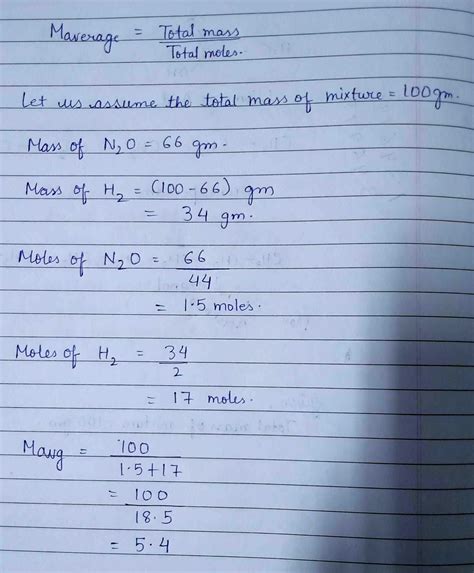 Maverage = Total mass
Total moles.
Let us assume the total mass of mixture = 100gm.
Mass of N2O = 66 gm.
Mass of H2 = (100-66) gm
= 34 gm.
Moles of N2O = 66
44
= 1.5 moles.
Moles of H2 = 34
2
= 17 moles.
Mavg = 100
1.5+17
= 100
18.5
= 5.4